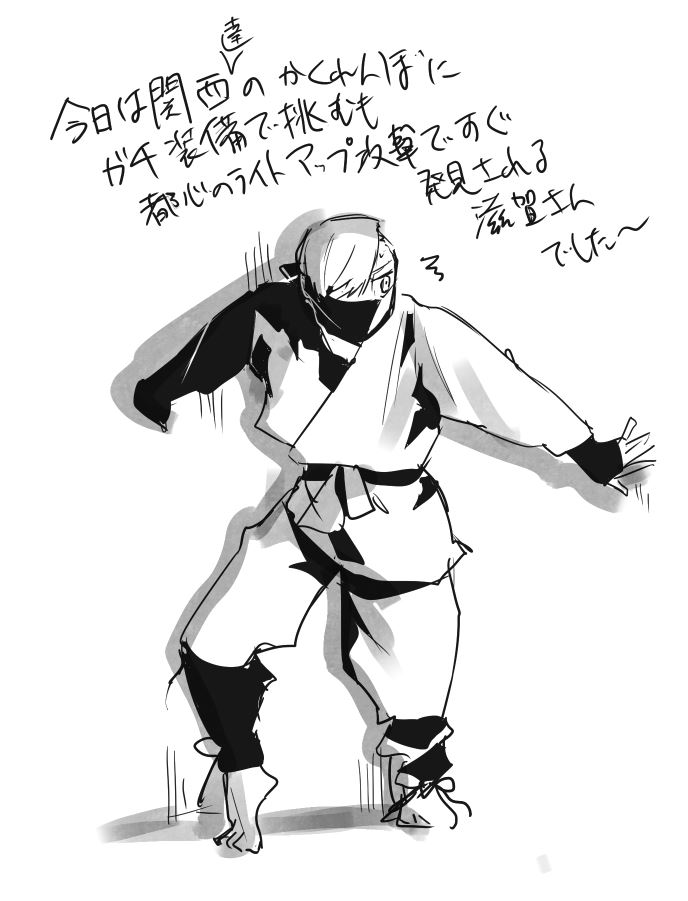 達
今日は関西のかくれんぼに
ガチ装備で挑むも
都心のライトアップ攻撃ですぐ
発見される
滋賀さん
でした〜